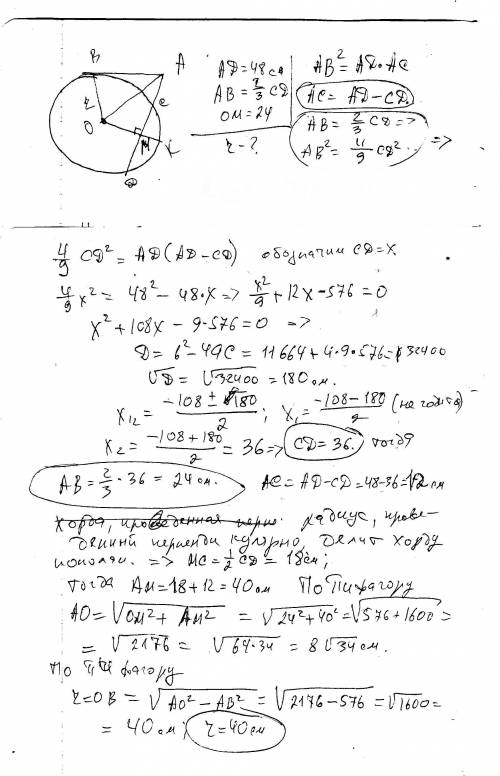 B A
AD=48 см
AB=2/3 CD
OM=24
r-?
AB²=AD·AC
AC=AD-CD.
AB=2/3 CD =>
AB²=4/9 CD² =>
r C
O M K
D
4/9 CD²=AD(AD-CD) обозначим CD=x.
4/9 x²=48²-48·x => x²/9+12x-576=0
x²+108x-9·576=0 =>
D=b²-4ac=11664+4·9·576=32400
√D=√32400=180 см.
x12=(-108±√180)/2; x1=(-108-180)/2 (не годится)
x2=(-108+180)/2=36 => CD=36. тогда
AB=2/3·36=24 см. AC=AD-CD=48-36=12 см
Хорда, проведенная перпе. радиус, прове-
денный перпендикулярно, делит хорду
пополам. => MC=1/2 CD=18см;
тогда AM=18+12=40см По Пифагору
AO=√OM²+AM²=√24²+40²=√576+1600=
=√2176=√64·34=8√34 см.
По Пифагору
r=OB=√AO²-AB²=√2176-576=√1600=
=40 см; r=40см